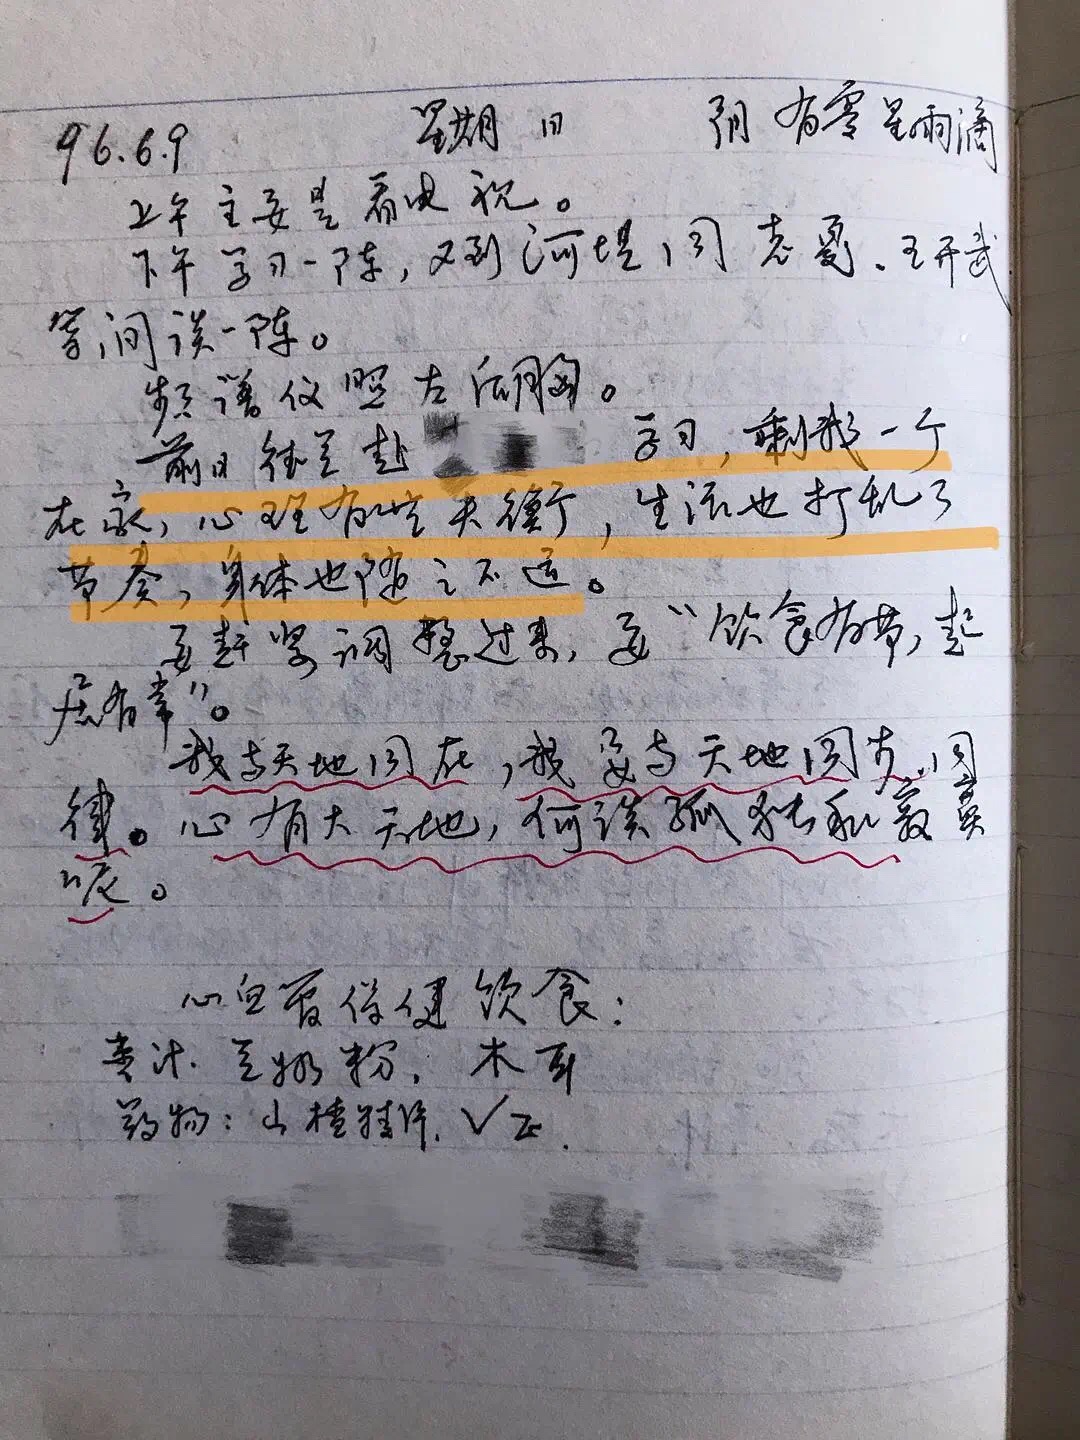 96.6.9 星期日 阴 有零星雨滴
上午主要是看电视。
下午学习一阵，又到河堤同志夏、王开武
等间谈一阵。
频谱仪照左后胸。
前日 赴 学习，剩我一个
在家，心理有些失衡，生活也打乱了
节奏，身体也随之不适。
要赶紧调整过来，要“饮食有节，起
居有常”。
我与天地同在，我要与天地同步、同
律。心有大天地，何谈孤独和寂寞
哎。
心血管保健饮食：
豆奶粉，木耳
药物：山楂精降、VE.